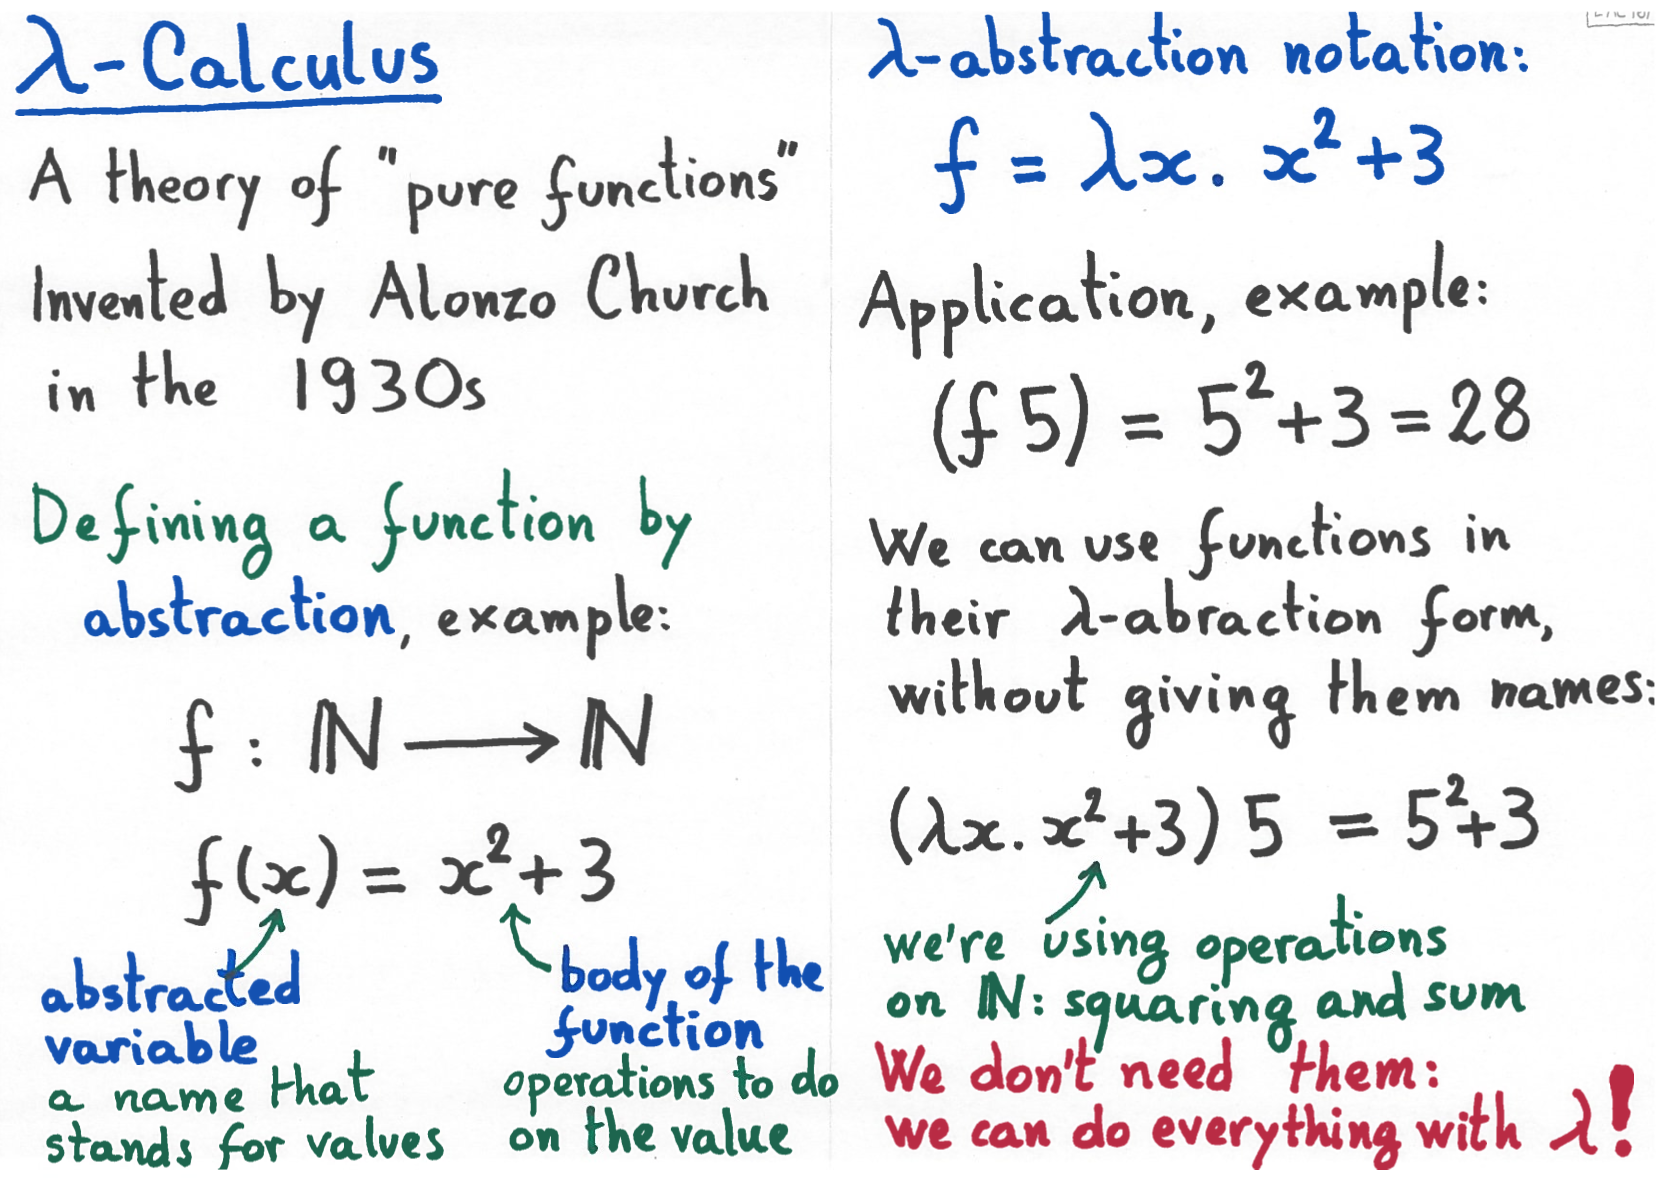 λ-Calculus
A theory of "pure functions"
Invented by Alonzo Church
in the 1930s
Defining a function by
abstraction, example:
f : ℕ ⟶ ℕ
f(x) = x²+3
abstracted
variable
a name that
stands for values
body of the
function
operations to do
on the value
λ-abstraction notation:
f = λx. x²+3
Application, example:
(f 5) = 5²+3 = 28
We can use functions in
their λ-abraction form,
without giving them names:
(λx. x²+3) 5 = 5²+3
we're using operations
on ℕ: squaring and sum
We don't need them:
we can do everything with λ!